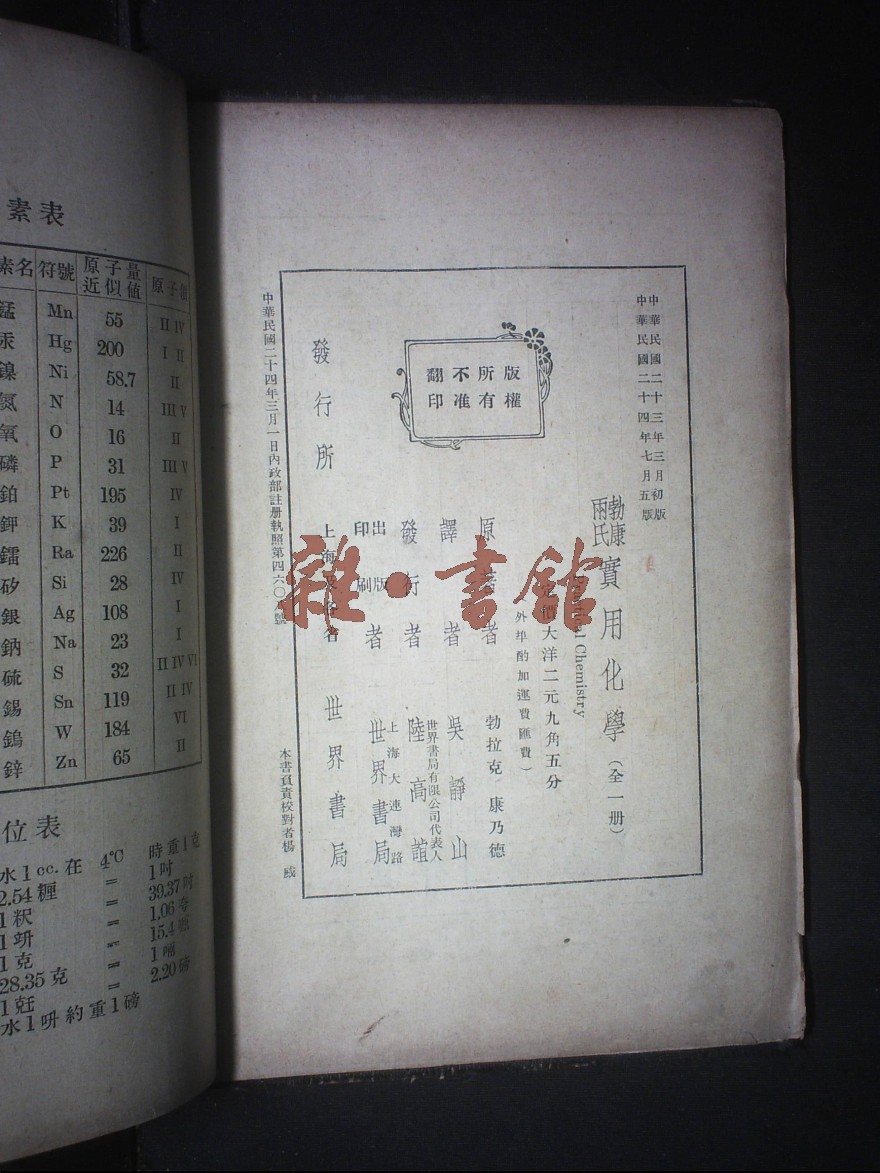 素表
素名 符號 原子量近似值 原子價
錳 Mn 55 II IV
汞 Hg 200 I II
鎳 Ni 58.7 II
氮 N 14 III V
氧 O 16 II
磷 P 31 III V
鉑 Pt 195 IV
鉀 K 39 I
鐳 Ra 226 II
矽 Si 28 IV
銀 Ag 108 I
鈉 Na 23 I
硫 S 32 II IV VI
錫 Sn 119 II IV
鎢 W 184 VI
鋅 Zn 65 II
位表
水1cc.在 4°C 時重1克
2.54糎 = 1吋
1粎 = 39.37吋
1竔 = 1.06夸
1克 = 15.4
28.35克 = 1啢
1兛 = 2.20磅
水1呏約重1磅
中華民國二十三年三月初版
中華民國二十四年七月五版
勃康兩氏實用化學(全一册)
Practical Chemistry
價大洋二元九角五分
外埠酌加運費匯費)
版權所有不准翻印
原著者 勃拉克 康乃德
譯者 吳靜山
發行者 世界書局有限公司代表人 陸高誼
出版印刷者 上海大連灣路 世界書局
發行所 上海及各省 世界書局
中華民國二十四年三月一日內政部註册執照第四六〇號
本書負責校對者楊
雜·書館